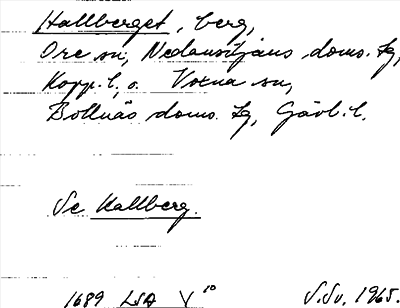 Hallberget, berg,
Ore sn, Nedansiljans doms. lg,
Kopp. l. o. Voxna sn,
Bollnäs doms. lg, Gävl. l.
Se Kallberg.
1689 LSA V 10 S.Sv. 1965.